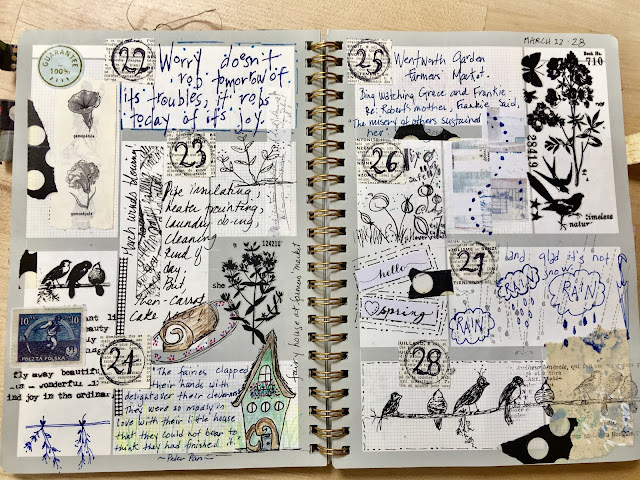 GUARANTEE
100%
22
Worry doesn't
rob tomorrow of
its troubles, it robs
today of its joy.
23
March winds blowing
Pipe insulating,
heater painting,
laundry do-ing,
Cleaning
Kind of
day,
But,
Then - Carrot
Cake
124210
she
fairy house at farmers market
10
10
POCZTA POLSKA
beauty
fly away beautiful
wonderful
ind joy in the ordinar
24
"The fairies clapped
their hands with
delight over their cleverness.
They were so madly in
love with their little house
that they could not bear to
think they had finished it."
~Peter Pan~
MARCH 22-28
25
Wentworth Garden
Farmers' Market.
Bing Watching Grace and Frankie -
Re: Robert's mother, Frankie Said,
"The misery of others sustained
her".
Book No.
710
timeless
natur
26
hello
spring
27
and, glad it's not
snow
RAIN
RAIN
RAIN
28